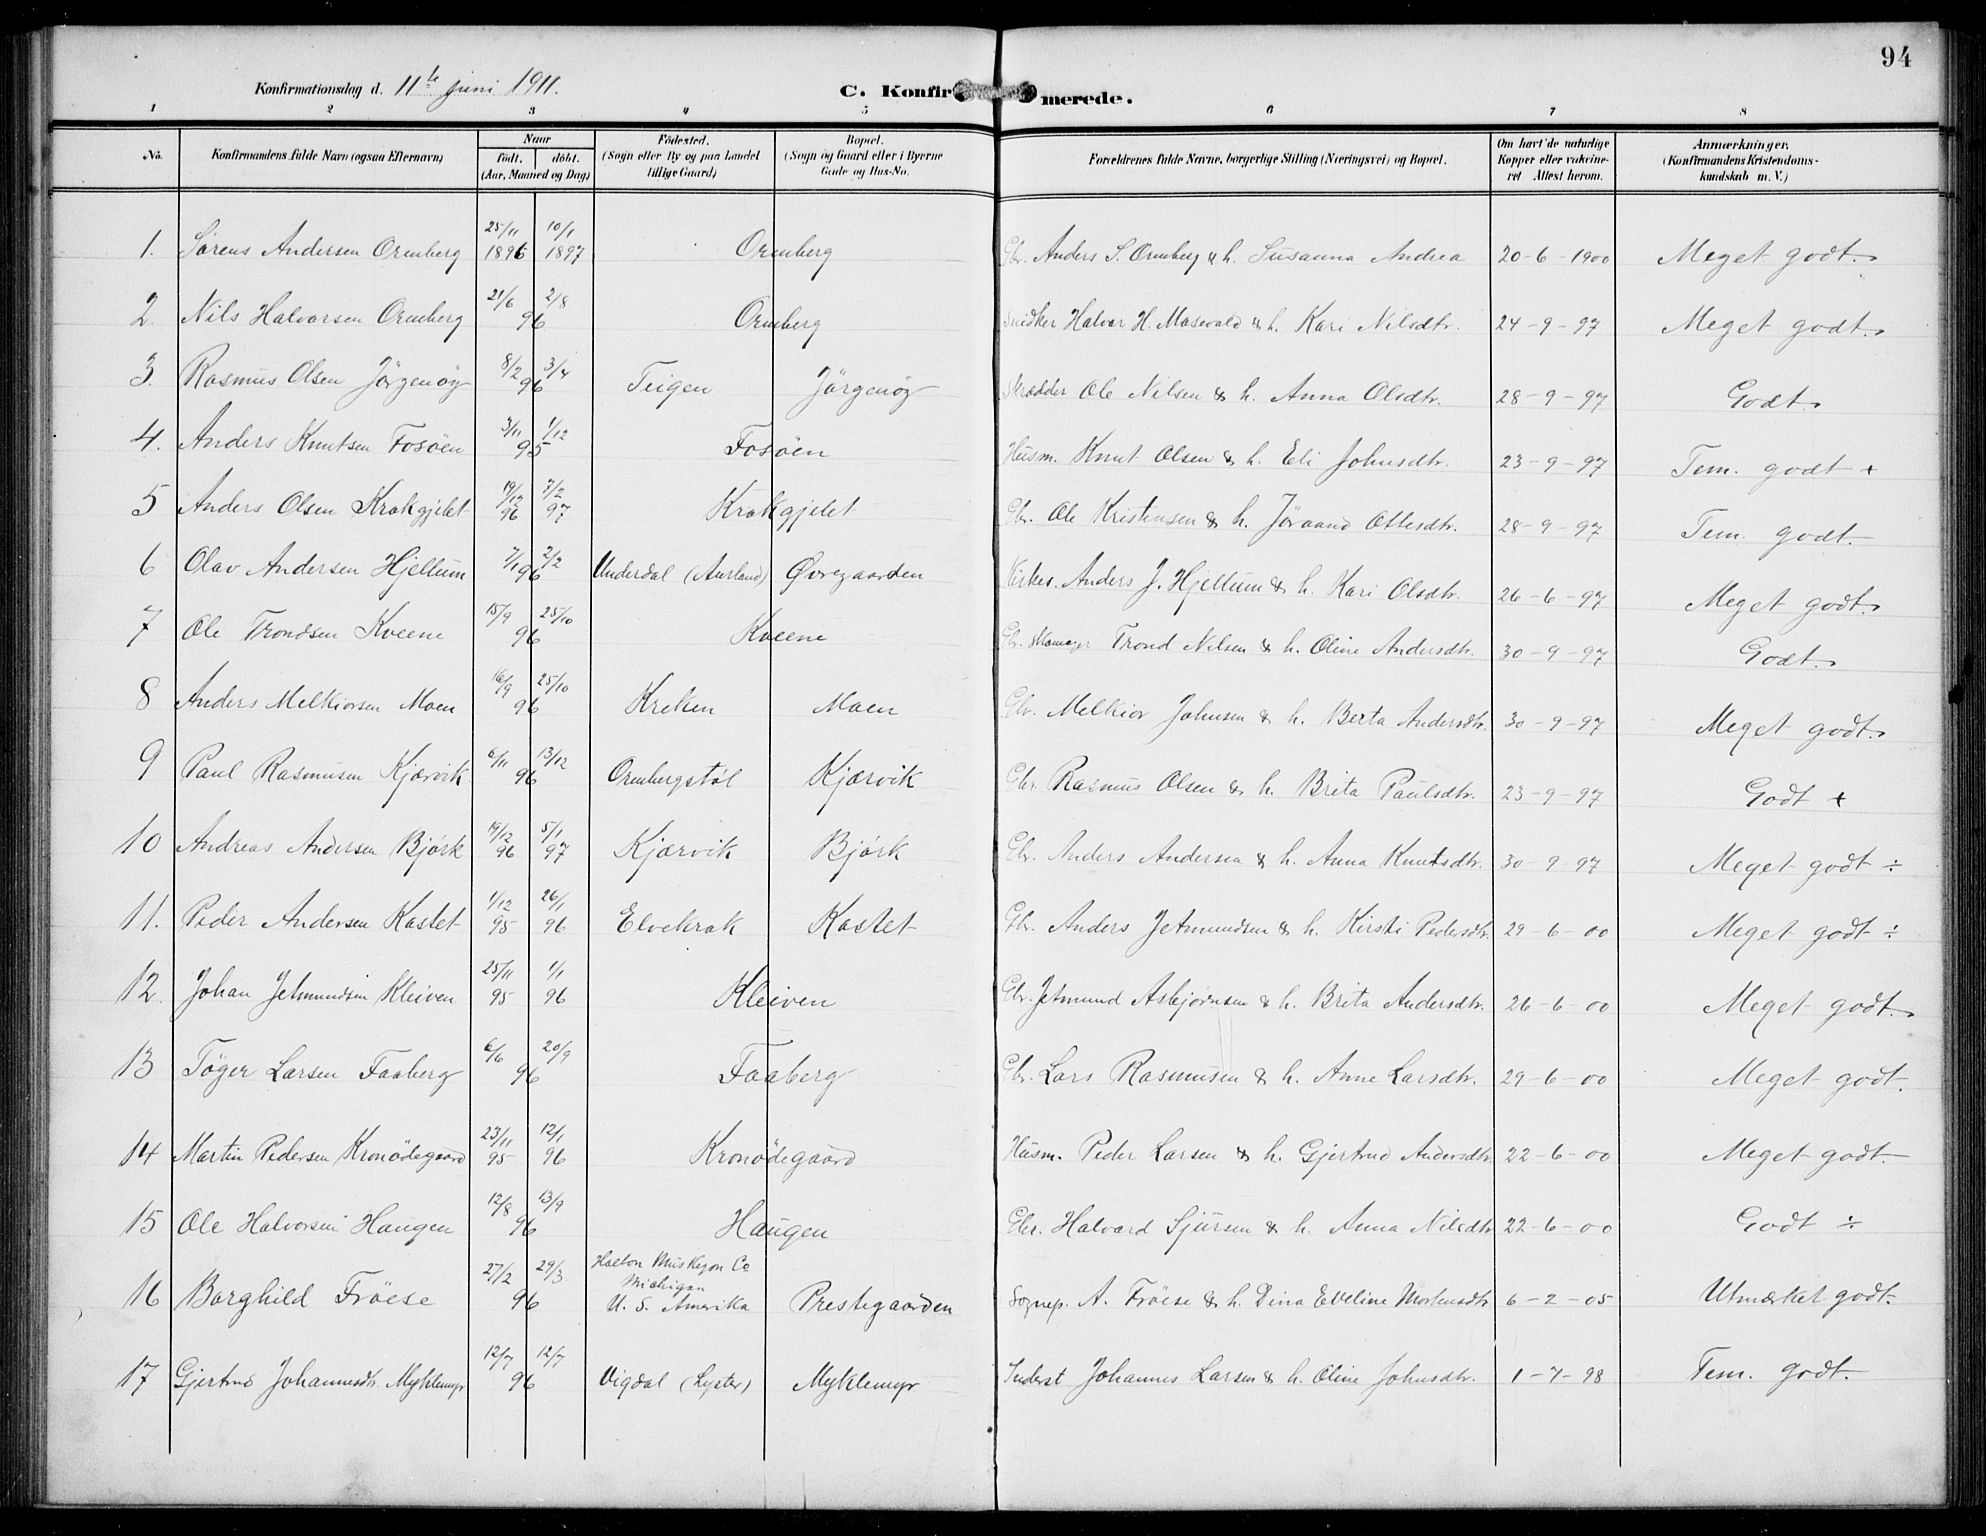 94
Konfirmationsdag d. 11te juni 1911.
C. Konfirmerede.
1 2 3 4 5 6 7 8
No. Konfirmandens fulde Navn (ogsaa Efternavn) Naar født. døbt. (Aar, Maaned og Dag) Fødested. (Sogn eller By og paa Landet tillige Gaard) Bopæl. (Sogn og Gaard eller i Byerne Gade og Hus-No. Forældrenes fulde Navne, borgerlige Stilling (Næringsvei) og Bopæl. Om havt de naturlige Kopper eller vakcineret Attest herom. Anmærkninger. (Konfirmandens Kristendomskundskab m. V.)
1. Sörens Andersen Ormberg 25/11 1896 10/1 1897 Ormberg Gbr. Anders S. Ormberg & h. Susanna Andrea 20-6-1900 Meget godt.
2. Nils Halvorsen Ormberg 21/6 2/8 96 Ormberg Snidker Halvor H. Masevold & h. Kari Nilsdtr. 24-9-97 Meget godt.
3. Rasmus Olsen Jörgenöy 8/2 3/4 96 Teigen Jörgenöy Skrædder Ole Nilsen & h. Anna Olsdtr. 28-9-97 Godt.
4. Anders Knutsen Fosöen 3/11 1/12 95 Fosöen Husm. Knut Olsen & h. Eli Johnsdtr. 23-9-97 Tem. godt +
5 Anders Olsen Krokgjelet 19/12 96 7/2 97 Krokgjelet Gbr. Ole Kristensen & h. Jöraand Ottesdtr. 28-9-97 Tem. godt.
6 Olav Andersen Hjellum 7/1 2/2 96 Underdal (Aurland) Øvregaarden Kirkes. Anders J. Hjellum & h. Kari Olsdtr. 26-6-97 Meget godt.
7 Ole Trondsen Kveene 15/9 25/10 96 Kveene Gbr. Skomager Trond Nilsen & h. Oline Andersdtr. 30-9-97 Godt.
8 Anders Melkiorsen Moen 16/9 25/10 96 Kreken Moen Gbr. Melkior Johnsen & h. Berta Andersdtr. 30-9-97 Meget godt.
9 Paul Rasmusen Kjærvik 6/11 13/12 96 Ormbergstöl Kjærvik Gbr. Rasmus Olsen & h. Brita Paulsdtr. 23-9-97 Godt +
10 Andreas Andersen Bjørk 19/12 96 5/1 97 Kjærvik Bjørk Gbr. Anders Andersen & h. Anna Knutsdtr. 30-9-97 Meget godt ÷
11. Peder Andersen Kastet 1/12 95 26/1 96 Elvekrok Kastet Gbr. Anders Jetmundsen & h. Kirsti Pedersdtr. 29-6-00 Meget godt ÷
12. Johan Jetmundsen Kleiven 25/11 95 1/1 96 Kleiven Gbr. Jetmund Asbjørnsen & h. Brita Andersdtr. 26-6-00 Meget godt.
13 Töger Larsen Faaberg 6/6 20/9 96 Faaberg Gbr. Lars Rasmusen & h. Anne Larsdtr. 29-6-00 Meget godt.
14 Martin Pedersen Kronödegaard 23/11 95 12/1 96 Kronödegaard Husm. Peder Larsen & h. Gjertrud Andersdtr. 22-6-00 Meget godt.
15 Ole Halvorsen Haugen 12/8 13/9 96 Haugen Gbr. Halvard Sjursen & h. Anna Nilsdtr. 22-6-00 Godt ÷
16 Borghild Fröese 27/2 29/3 96 Holton Muskegon Co Michigan U. S. Amerika Prestegaarden Sognep. A. Fröese & h. Dina Eveline Mortensdtr. 6-2-05 Utmærket godt.
17 Gjertrud Johannesdtr. Myklemyr 12/7 12/7 96 Vigdal (Lyster) Myklemyr Inderst Johannes Larsen & h. Oline Johnsdtr. 1-7-98 Tem. godt.